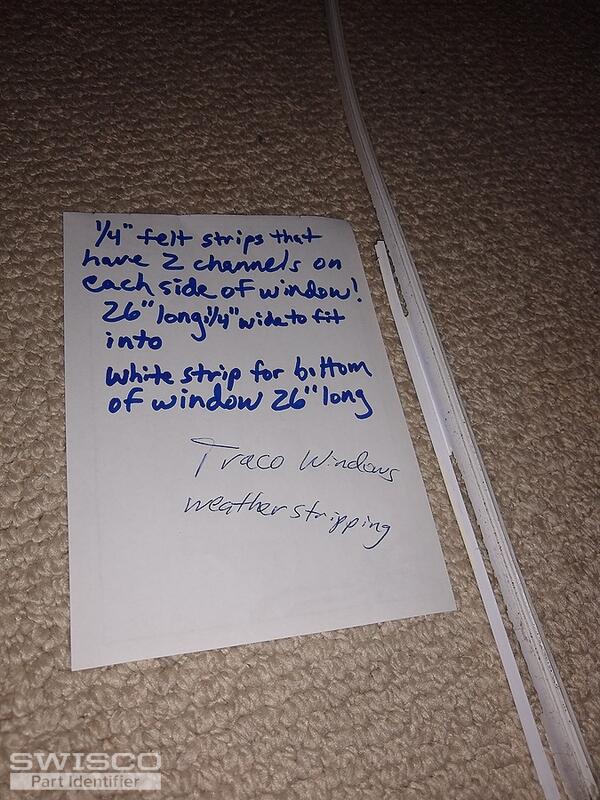 1/4" felt strips that
have 2 channels on
each side of window!
26" long 1/4" wide to fit
into
white strip for bottom
of window 26" long
Traco Windows
weather stripping
SWISCO
Part Identifier